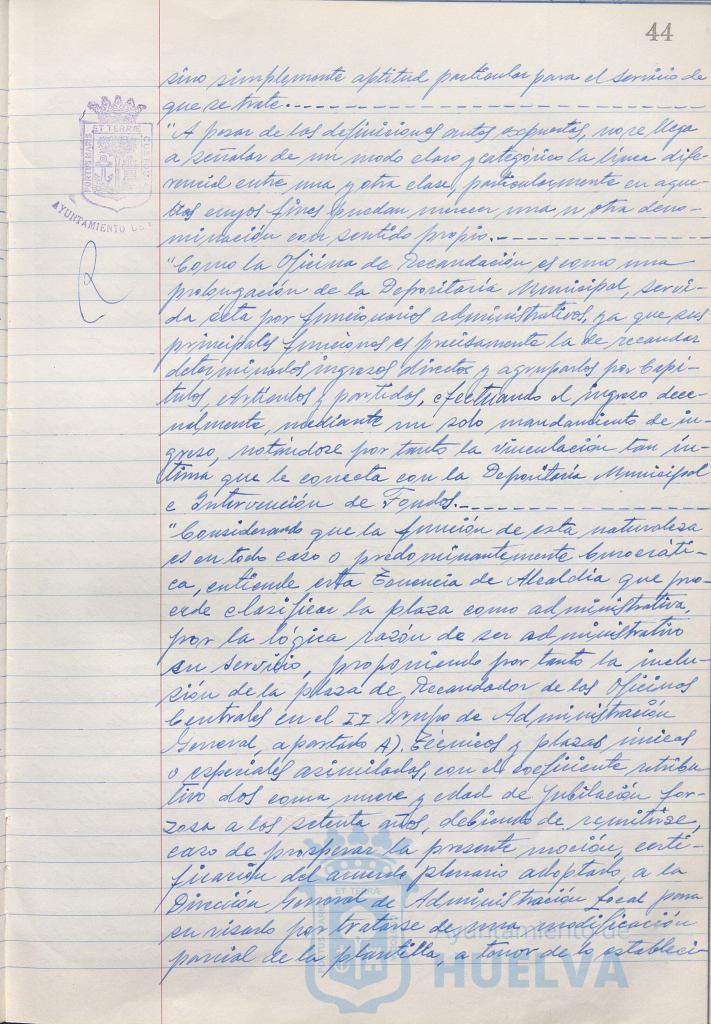 44
sino simplemente aptitud particular para el servicio de
que se trate.
"A pesar de las definiciones antes expuestas, no se llega
a señalar de un modo claro y categórico la línea dife-
rencial entre una y otra clase, particularmente en aque-
llas cuyos fines puedan merecer una u otra deno-
minación con sentido propio.
"Como la Oficina de Recaudación es como una
prolongación de la Depositaría Municipal, servi-
da ésta por funcionarios administrativos, ya que sus
principales funciones es precisamente la de recaudar
determinados ingresos directos y agruparlos por Capí-
tulos, Artículos y partidas, efectuando el ingreso dece-
nalmente, mediante un solo mandamiento de in-
greso, notándose por tanto la vinculación tan ín-
tima que le conecta con la Depositaría Municipal
e Intervención de Fondos.
"Considerando que la función de esta naturaleza
es en todo caso o predominantemente burocráti-
ca, entiende esta Tenencia de Alcaldía que pro-
cede clasificar la plaza como administrativa,
por la lógica razón de ser administrativo
su servicio, proponiendo por tanto la inclu-
sión de la plaza de Recaudador de las Oficinas
Centrales en el II Grupo de Administración
General, apartado A). Técnicos y plazas únicas
o especiales asimiladas, con el coeficiente retribu-
tivo dos coma nueve y edad de jubilación for-
zosa a los setenta años, debiendo de remitirse,
caso de prosperar la presente moción, certi-
ficación del acuerdo plenario adoptado, a la
Dirección General de Administración Local para
su visado por tratarse de una modificación
parcial de la plantilla, a tenor de lo estableci-
ET TERRAE
AYUNTAMIENTO DE
ET TERRAE
Ayuntamiento de
HUELVA